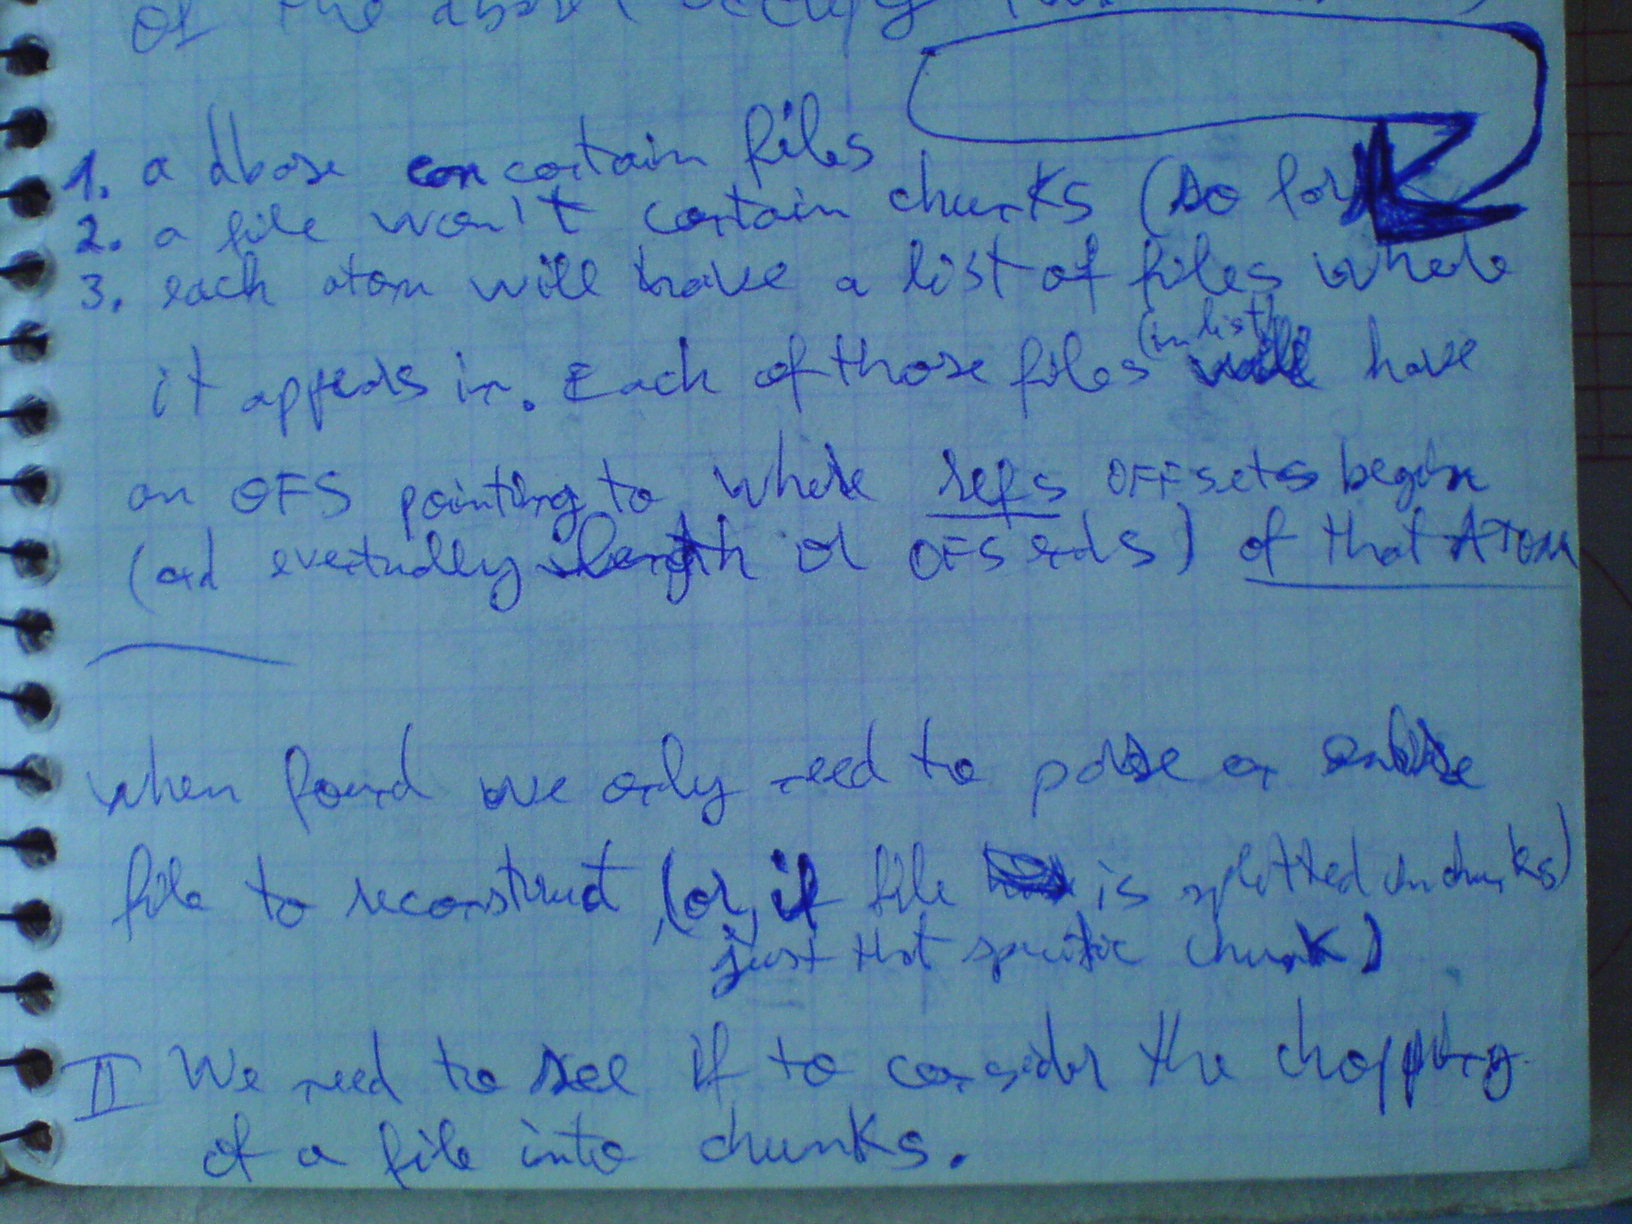 of the dbase occupy
1. a dbase can contain files
2. a file won't contain chunks (so far)
3. each atom will have a list of files where
it appears in. Each of those files (in list) will have
an OFS pointing to where refs OFFsets begin
(and eventually length or OFS ends) of that ATOM
when found we only need to parse an entire
file to reconstruct, (or, if file is splitted in chunks)
just that specific chunk)
II We need to see if to consider the chopping
of a file into chunks.